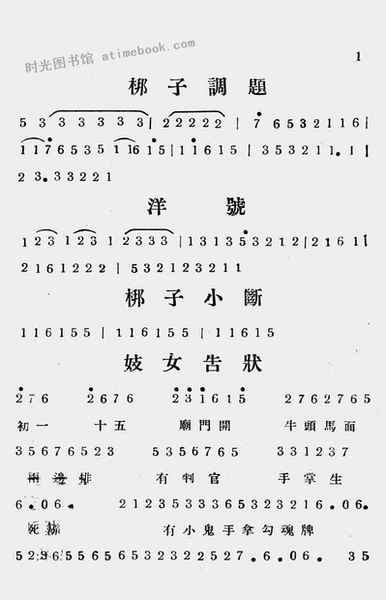 时光图书馆 atimebook.com
1
梆子調題
5 3 3 3 3 3 3 | 2 2 2 2 2 | 7 6 5 3 2 1 1 1 6 |
1 1 7 6 5 3 5 1 1 6 1 5 | 1 1 6 1 5 | 3 5 3 2 1 1 . 1 |
2 3 . 3 3 2 2 1
洋號
1 2 3 1 2 3 1 2 3 3 3 | 1 3 1 3 5 3 2 1 2 | 2 1 6 1 |
2 1 6 1 2 2 2 | 5 3 2 1 2 3 2 1 1
梆子小斷
1 1 6 1 5 5 | 1 1 6 1 5 5 | 1 1 6 1 5
妓女告狀
2 7 6 2 6 7 6 2 3 1 6 1 5 2 7 6 2 7 6 5
初一 十五 廟門開 牛頭馬面
3 5 7 6 5 2 3 5 3 5 6 7 6 5 3 3 1 2 3 7
兩邊排 有判官 手掌生
6 . 0 6 . 2 1 2 3 5 3 3 3 6 5 3 2 1 6 . 0 6 .
死 有小鬼手拿勾魂牌
5 2 3 6 5 5 6 5 6 5 3 2 3 5 2 3 2 7 . 6 . 0 6 . 3 5